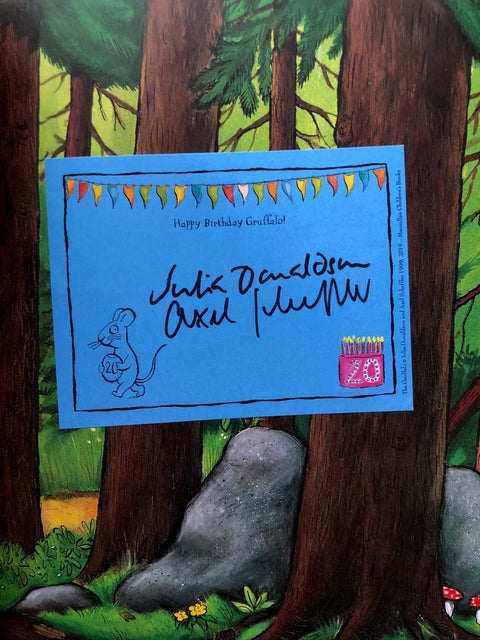 Happy Birthday Gruffalo!
Julia Donaldson
Axel Scheffler
20
20
The Gruffalo © Julia Donaldson and Axel Scheffler 1999, 2019 – Macmillan Children's Books